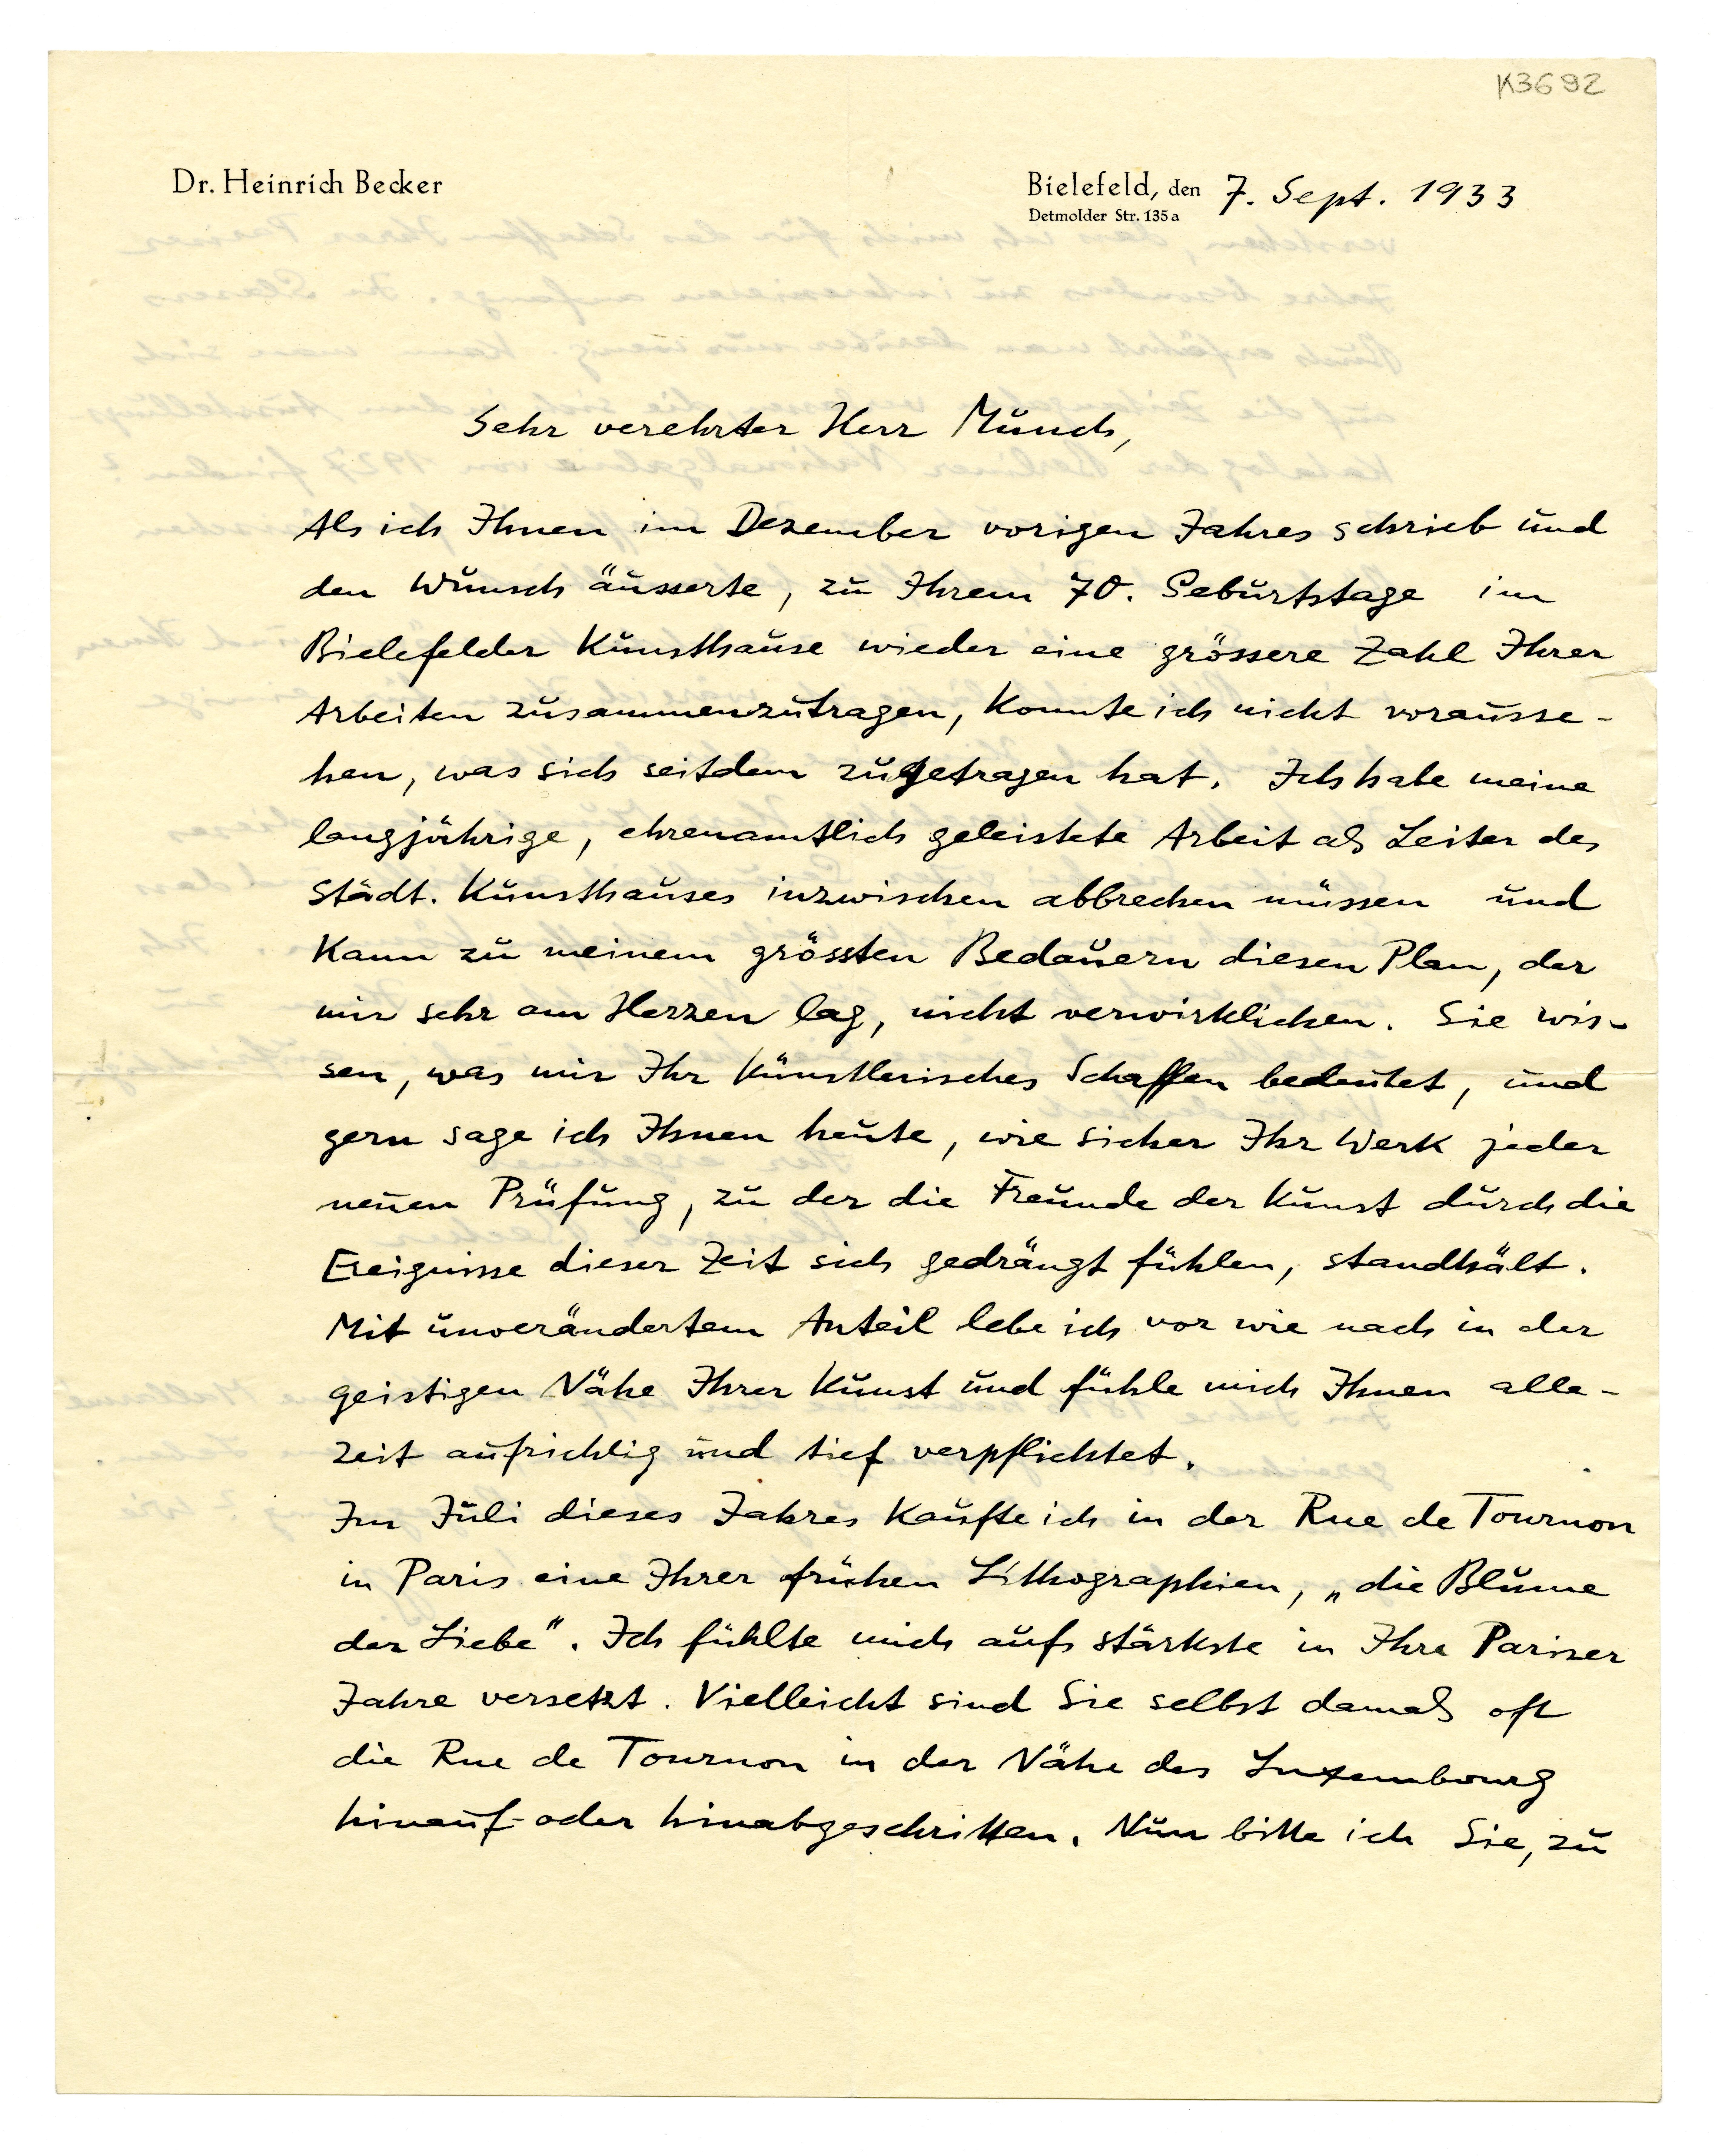 K3692
Dr. Heinrich Becker
Bielefeld, den 7. Sept. 1933
Detmolder Str. 135a
Sehr verehrter Herr Munch,
Als ich Ihnen im Dezember vorigen Jahres schrieb und
den Wunsch äusserte, zu Ihrem 70. Geburtstage im
Bielefelder Kunsthause wieder eine grössere Zahl Ihrer
Arbeiten zusammenzutragen, konnte ich nicht vorausse-
hen, was sich seitdem zugetragen hat. Ich habe meine
langjährige, ehrenamtlich geleistete Arbeit als Leiter des
Städt. Kunsthauses inzwischen abbrechen müssen und
kann zu meinem grössten Bedauern diesen Plan, der
mir sehr am Herzen lag, nicht verwirklichen. Sie wis-
sen, was mir Ihr künstlerisches Schaffen bedeutet, und
gern sage ich Ihnen heute, wie sicher Ihr Werk jeder
neuen Prüfung, zu der die Freunde der Kunst durch die
Ereignisse dieser Zeit sich gedrängt fühlen, standhält.
Mit unverändertem Anteil lebe ich vor wie nach in der
geistigen Nähe Ihrer Kunst und fühle mich Ihnen alle-
zeit aufrichtig und tief verpflichtet.
Im Juli dieses Jahres kaufte ich in der Rue de Tournon
in Paris eine Ihrer frühen Lithographien, „die Blume
der Liebe". Ich fühlte mich aufs stärkste in Ihre Pariser
Jahre versetzt. Vielleicht sind Sie selbst damals oft
die Rue de Tournon in der Nähe des Luxembourg
hinauf- oder hinabgeschritten. Nun bitte ich Sie, zu